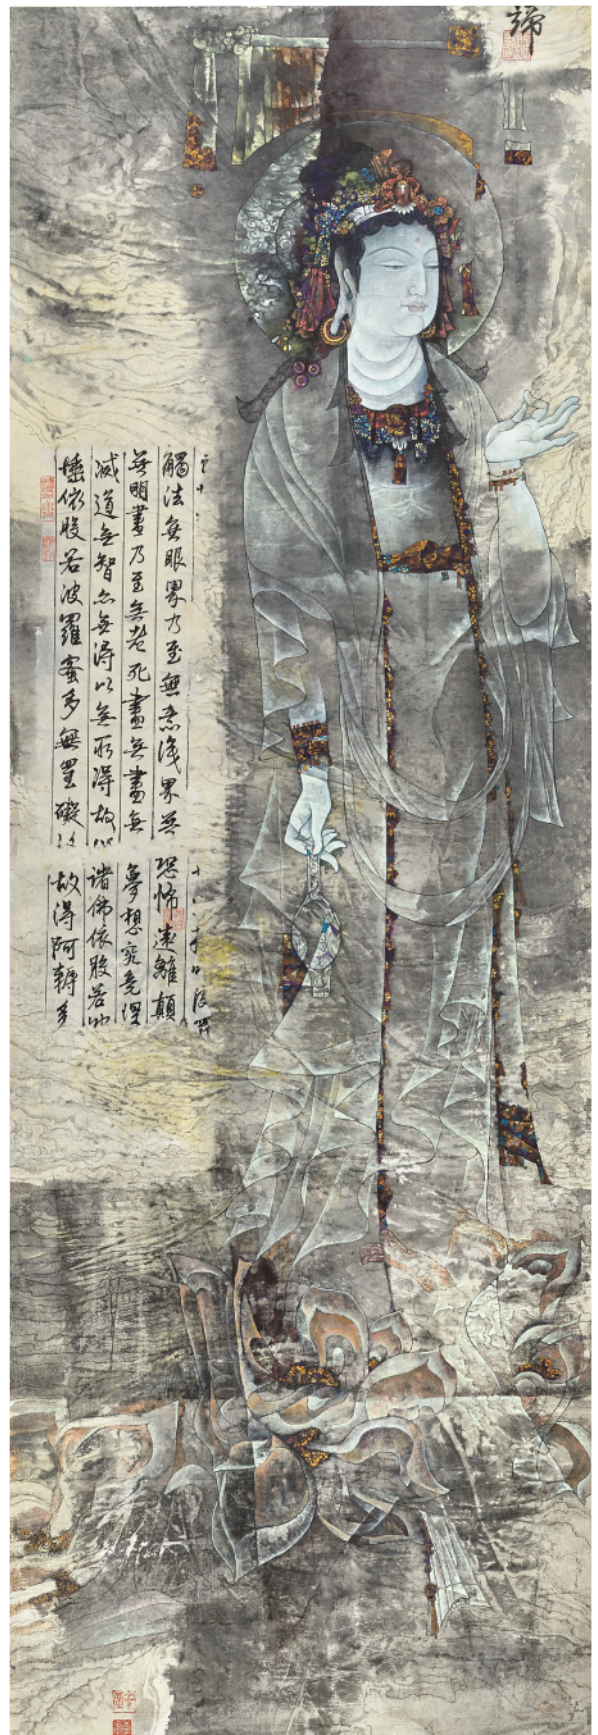 觸法無眼界乃至無意識界無
無明盡乃至無老死盡無盡無
滅道無智亦無得以無所得故
埵依般若波羅蜜多無罣礙
恐怖遠離顛
夢想究竟涅
諸佛依般若
故得阿耨多